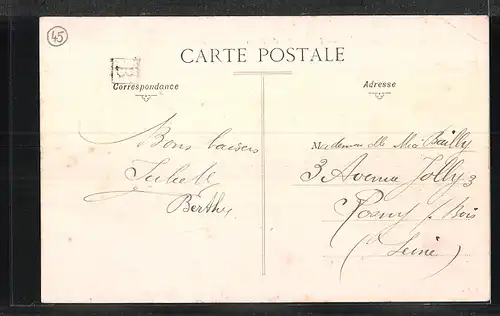 45
CARTE POSTALE
Correspondance
Adresse
Bons baisers
Berthe
Mademoiselle Bailly
3 Avenue Jolly 3
Rosny s/ Bois
(Seine)